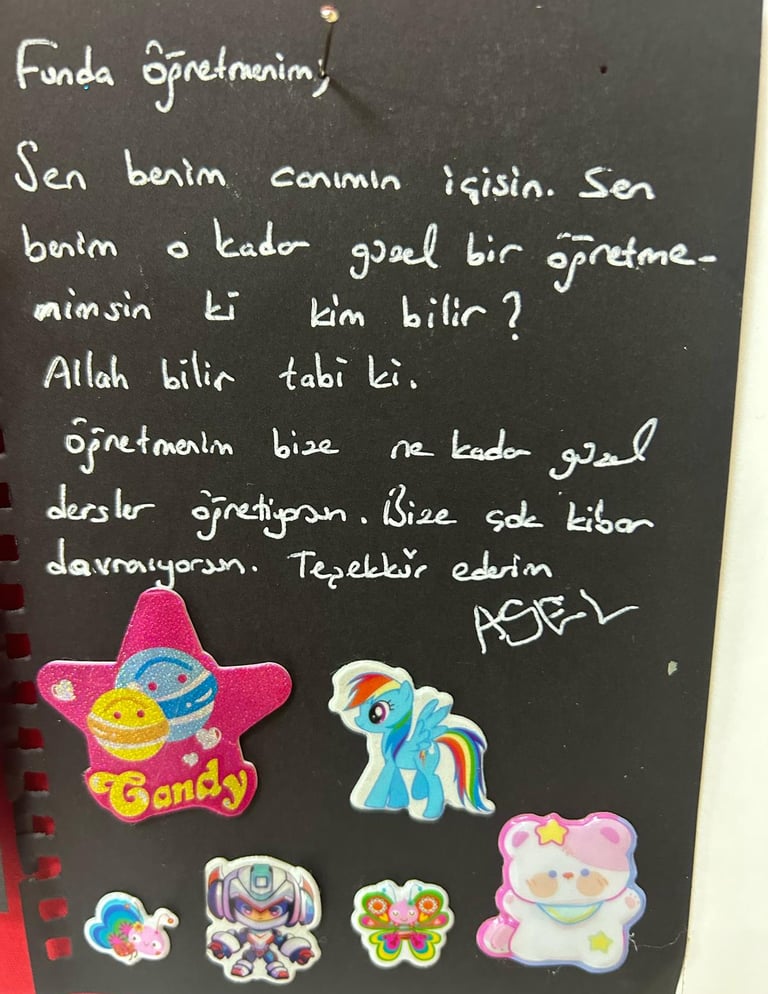 Funda öğretmenim;
Sen benim canımın içisin. Sen
benim o kadar güzel bir öğretme-
nimsin ki kim bilir?
Allah bilir tabi ki.
öğretmenim bize ne kadar güzel
dersler öğretiyorsun. Bize çok kibar
davranıyorsun. Teşekkür ederim
ASEL
Candy